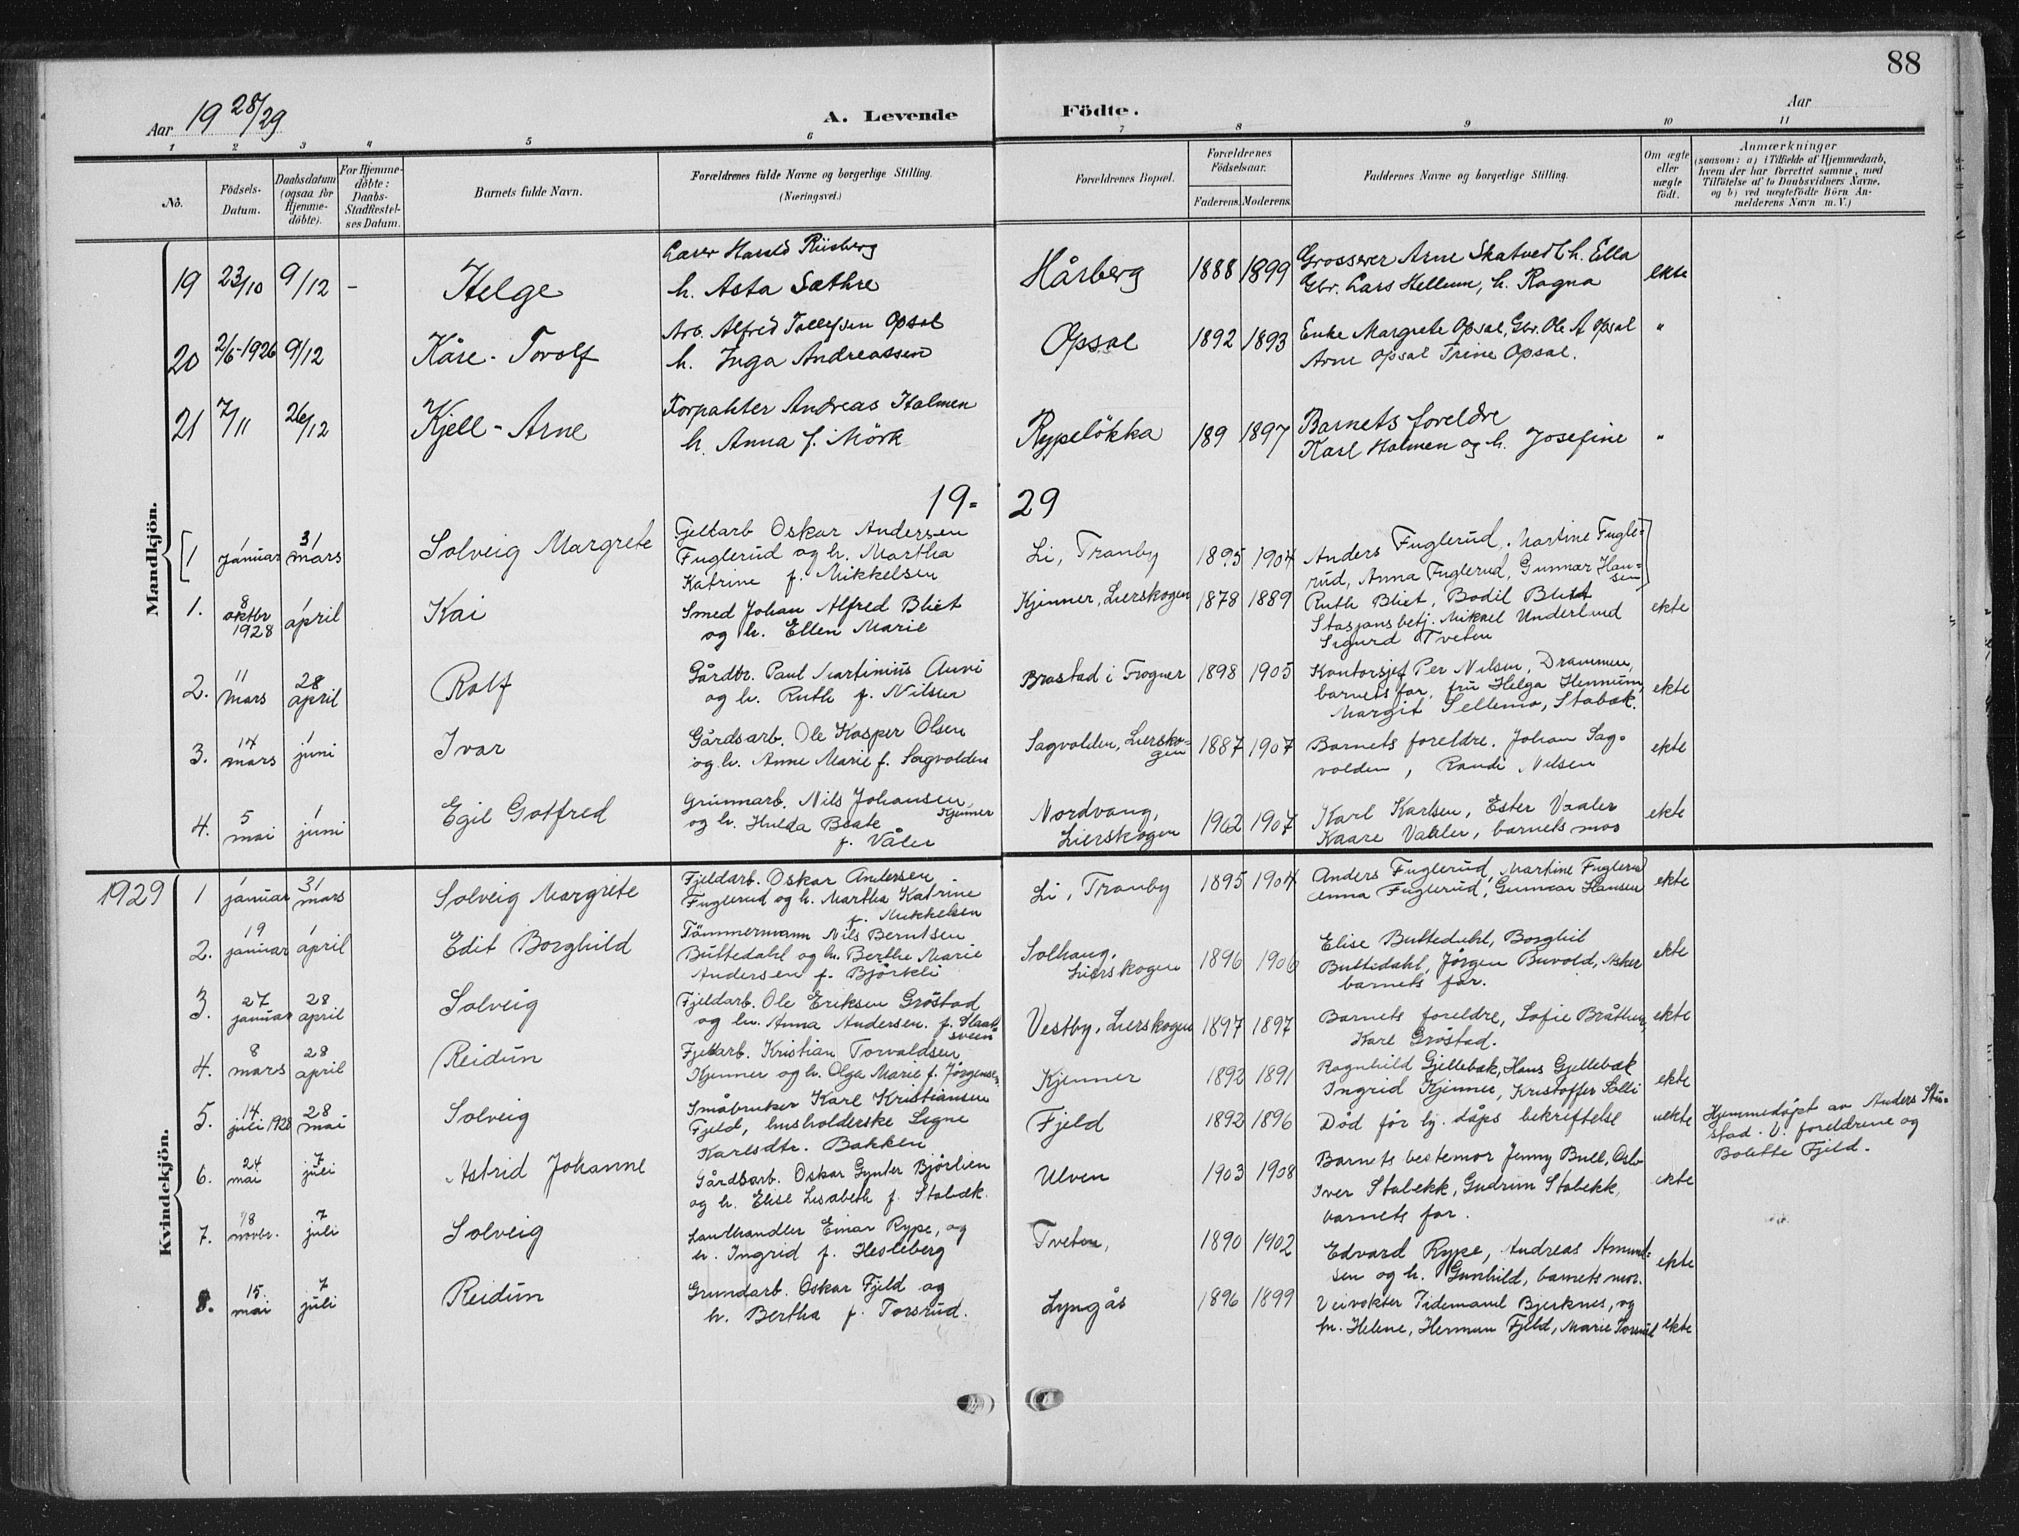 88
Aar 19 28/29
A. Levende Födte.
Aar
1 2 3 4 5 6 7 8 9 10 11
No.
Födsels-Datum.
Daabsdatum (ogsaa for Hjemme-döbte).
For Hjemme-döbte: Daabs-Stadfestel-ses Datum.
Barnets fulde Navn.
Forældrenes fulde Navne og borgerlige Stilling.
(Næringsvei.)
Forældrenes Bopæl.
Forældrenes Födselsaar.
Faderens. Moderens.
Faddernes Navne og borgerlige Stilling.
Om ægte eller uægte födt.
Anmærkninger
(saasom: a) i Tilfælde af Hjemmedaab,
hvem der har forrettet samme, med
Tilföielse af to Daabsvidners Navne,
og b) ved uægtefödte Börn An-
melderens Navn m. V.)
Mandkjön.
19 23/10 9/12 - Helge
Lærer Harald Riisberg
h. Asta Sæthre
Hårberg 1888 1899
Grosserer Arne Skatvedt h. Ella
Gbr. Lars Hellum, h. Ragna
ekte
20 2/6-1926 9/12 Kåre-Torolf
Arb. Alfred Tollefsen Opsal
h. Inga Andreassen
Opsal 1892 1893
Enke Margrete Opsal, Gbr. Ole A Opsal
Arne Opsal Trine Opsal.
"
21 7/11 26/12 Kjell-Arne
Forpakter Andreas Holmen
h. Anna f. Mörk
Rypelökka 189 1897
Barnets foreldre
Karl Holmen og h. Josefine
"
19-29
[1 1 januar 31 mars Solveig Margrete
Fjellarb Oskar Andersen
Fuglerud og h. Martha
Katrine f. Mikkelsen
Li, Tranby 1895 1904
Anders Fuglerud, Martine Fugle-
rud, Anna Fuglerud, Gunnar Han-
sen]
1. 8 oktbr 1928 1 april Kai
Smed Johan Alfred Bliet
og h. Ellen Marie
Kjenner, Lierskogen 1878 1889
Ruth Bliet, Bodil Bliet
Stasjonsbetj. Mikael Underlund
Sigurd Tveten
ekte
2. 11 mars 28 april Rolf
Gårdbr. Paul Martinius Auvi
og h. Ruth f. Nilsen
Brastad i Frogner 1898 1905
Kontorsjef Per Nilsen, Drammen,
barnets far, fru Helga Hennum,
Margit Sellemo, Stabæk.
ekte
3. 14 mars 1 juni Ivar
Gårdsarb. Ole Kasper Olsen
og h. Anne Marie f. Sagvolden
Sagvolden, Liersko-
gen
1887 1907
Barnets foreldre. Johan Sag-
volden, Randi Nilsen
ekte
4. 5 mai 1 juni Egil Gotfred
Grunnarb. Nils Johansen
Kjenner
og h. Hulda Beate
f. Våler
Nordvang,
Lierskogen
1902 1907
Karl Karlsen, Ester Vaaler
Kaare Vaaler, barnets mor
ekte
Kvindekjön.
1929
1 1 januar 31 mars Solveig Margrete
Fjeldarb. Oskar Andersen
Fuglerud og h. Martha Katrine
f. Mikkelsen
Li, Tranby 1895 1904
Anders Fuglerud, Martine Fuglerud
Anna Fuglerud, Gunnar Hansen
ekte
2. 19 januar 1 april Edit Borghild
Tömmermann Nils Berntsen
Buttedahl og h. Berthe Marie
Andersen f. Björkli
Solhaug,
Lierskogen
1896 1906
Elise Buttedahl, Borghil
Buttedahl, Jörgen Buvold, Asker
barnets far.
ekte
3. 27 januar 28 april Solveig
Fjeldarb. Ole Eriksen Gröstad
og h. Anna Andersen f. Slaat-
sveen
Vestby, Lierskogen 1897 1897
Barnets foreldre, Sofie Bråthen,
Karl Gröstad.
ekte
4. 8 mars 28 april Reidun
Fjellarb. Kristian Torvaldsen
Kjenner og h. Olga Marie f. Jörgensen
Kjenner 1892 1891
Ragnhild Gjellebæk, Hans Gjellebæk
Ingrid Kjenner, Kristoffer Solli
ekte
5. 14. juli 1928 28 mai Solveig
Småbruker Karl Kristiansen
Fjeld, husholderske Signe
Karlsdtr. Bakken
Fjeld 1892 1896
Död för hj. dåps bekriftelse
uekte
Hjemmedöpt av Anders Stu-
stad. V. foreldrene og
Bolette Fjeld.
6. 24 mai 7 juli Astrid Johanne
Gårdsarb. Oskar Gynter Björlien
og h. Elise Lisabeth f. Stabæk.
Ulven 1903 1908
Barnets bestemor Jenny Bull, Oslo
Iver Stabekk, Gudrun Stabekk,
barnets far.
ekte
7. 18 novbr. 7 juli Solveig
Landhandler Einar Rype, og
h. Ingrid f. Hesleberg
Tveten, 1890 1902
Edvard Rype, Andreas Amund-
sen og h. Gunhild, barnets mor.
ekte
8. 15. mai 7 juli Reidun
Grundarb. Oskar Fjeld og
h. Bertha f. Torsrud.
Lyngås 1896 1899
Veivokter Tidemand Bjerknes, og
fr. Helene, Herman Fjeld, Marie Torsrud
ekte